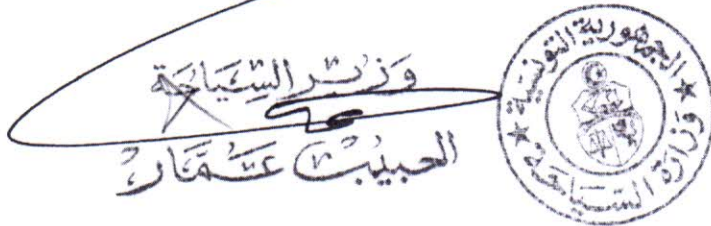 وزير السياحة
الحبيب عمار
الجمهورية التونسية
وزارة السياحة